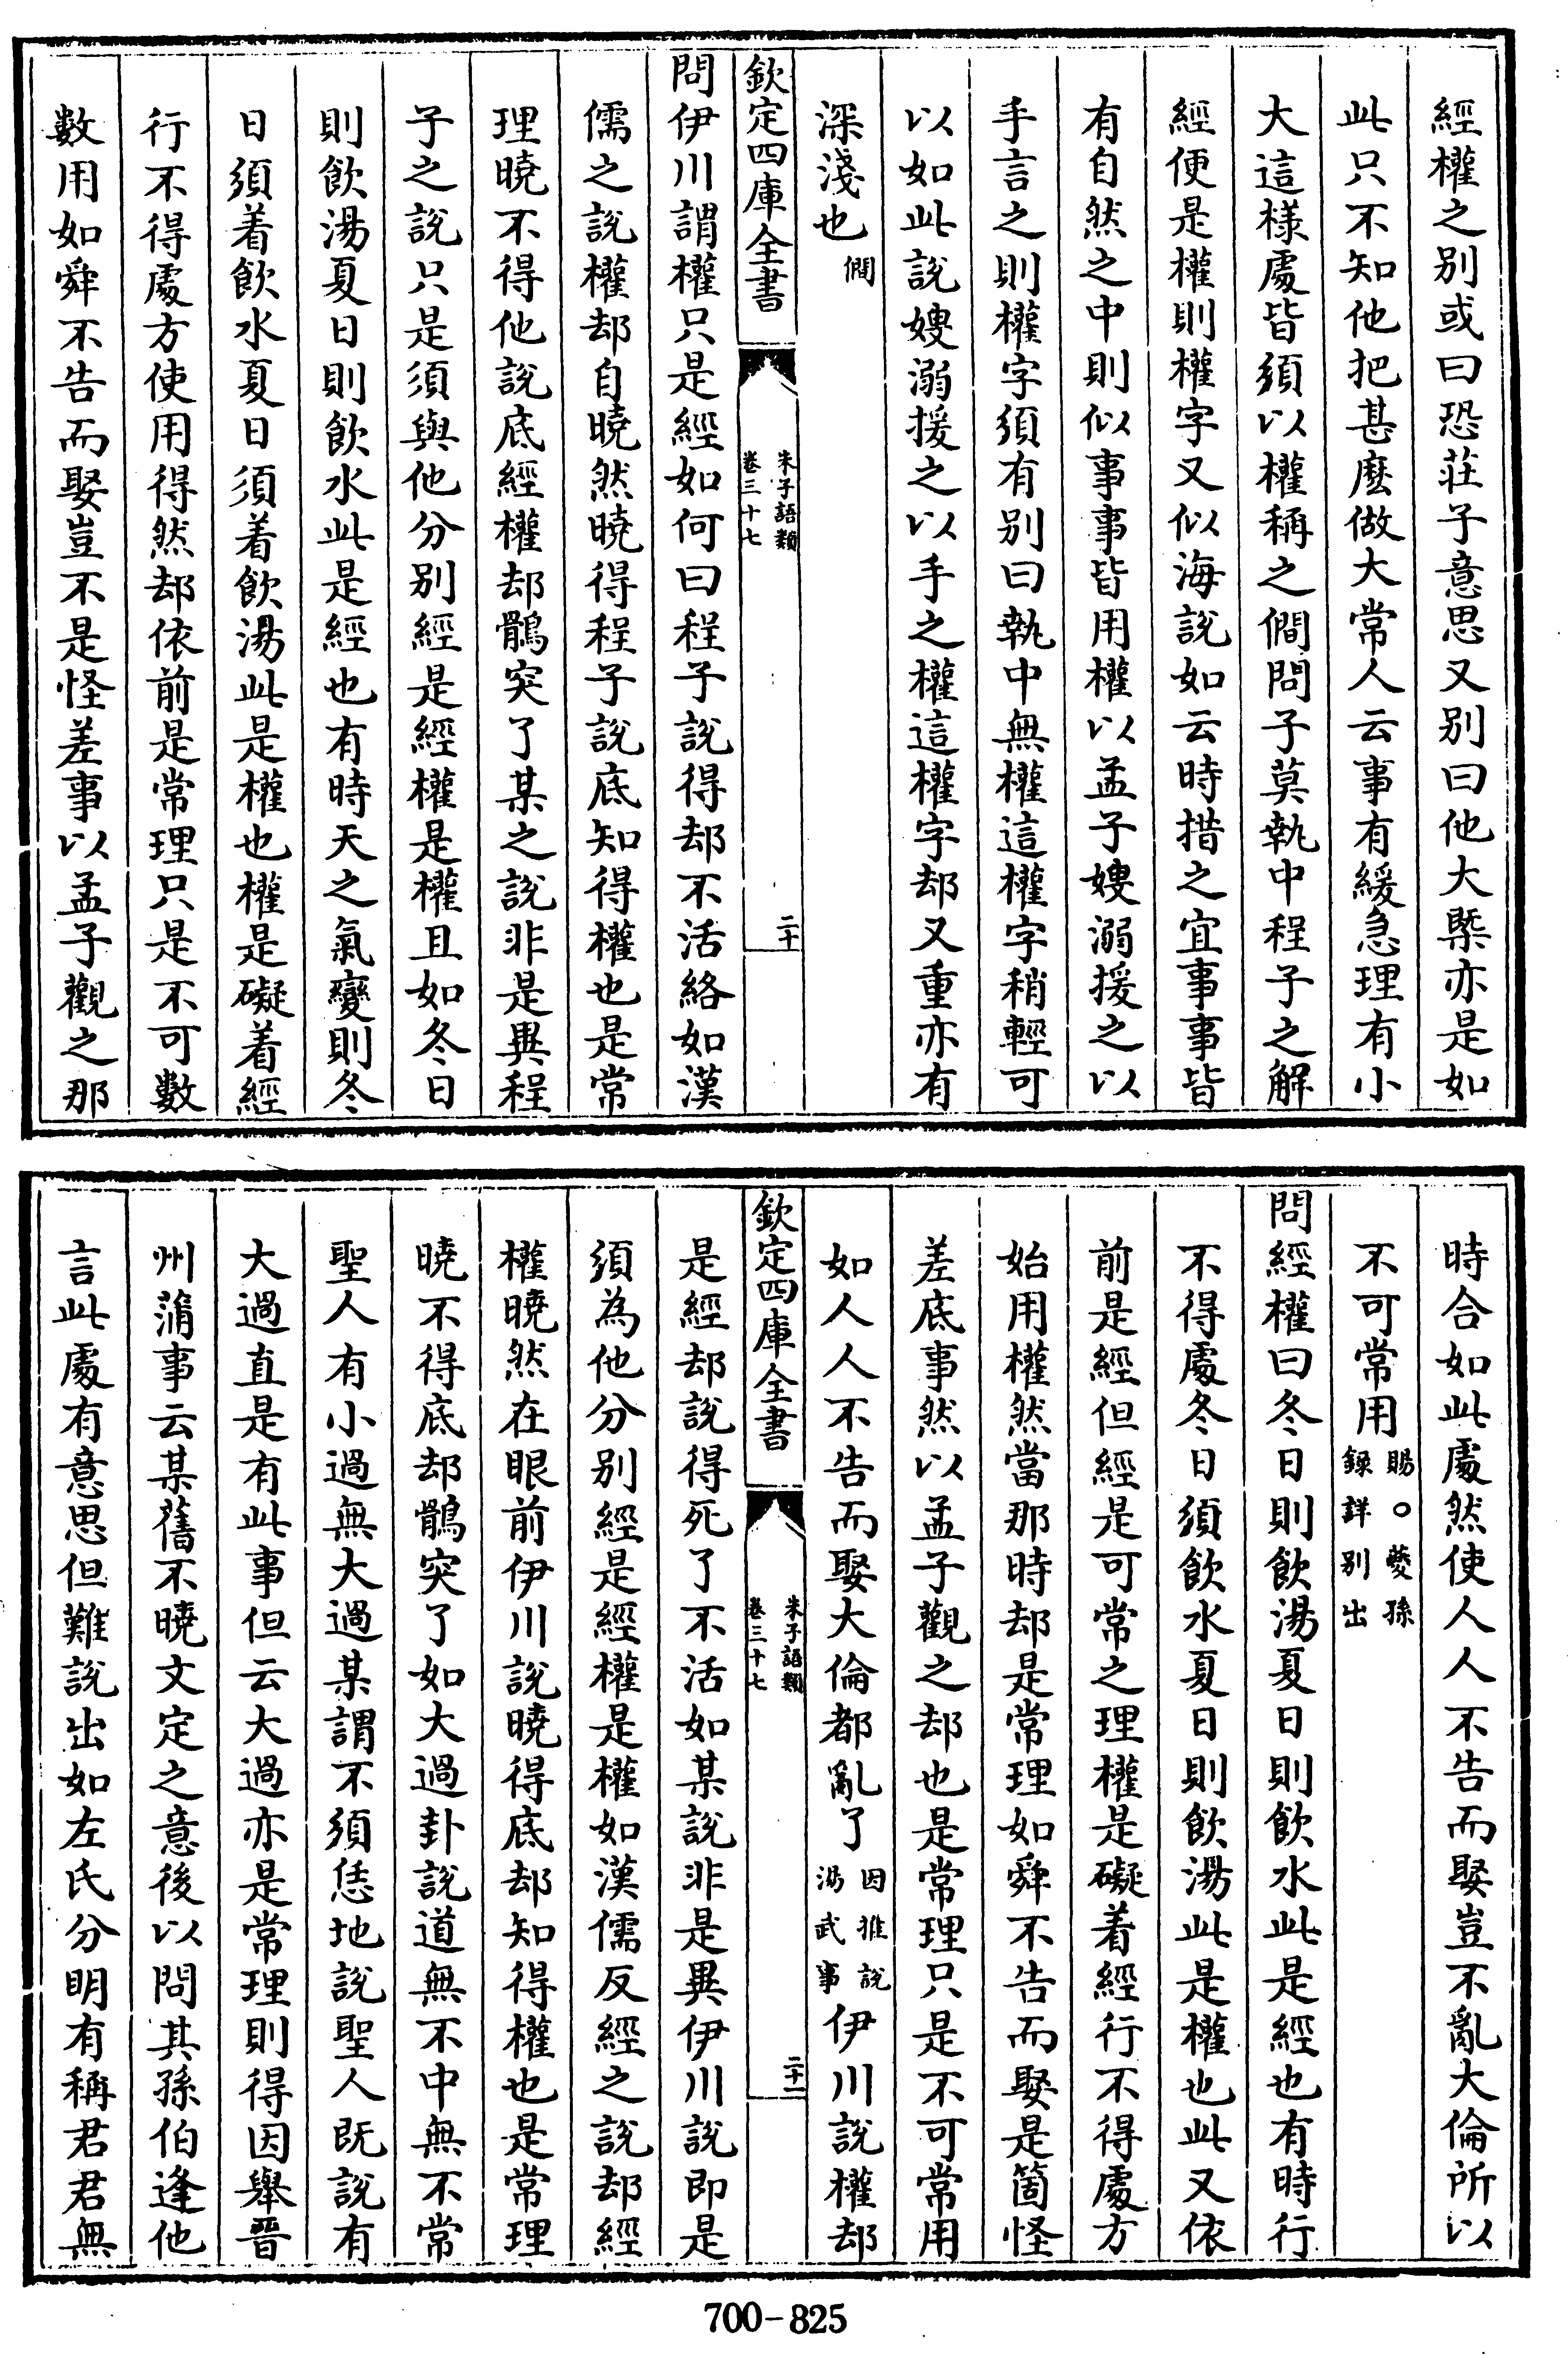 經權之別或曰恐莊子意思又別曰他大槩亦是如
此只不知他把甚麽做大常人云事有緩急理有小
大這樣處皆須以權稱之僩問子莫執中程子之解
經便是權則權字又似海說如云時措之宜事事皆
有自然之中則似事事皆用權以孟子嫂溺援之以
手言之則權字須有別曰執中無權這權字稍輕可
以如此說嫂溺援之以手之權這權字却又重亦有
深淺也僩
欽定四庫全書
朱子語類
卷三十七
二十
問伊川謂權只是經如何曰程子說得却不活絡如漢
儒之說權却自曉然曉得程子說底知得權也是常
理曉不得他說底經權却鶻突了某之說非是異程
子之說只是須與他分別經是經權是權且如冬日
則飲湯夏日則飲水此是經也有時天之氣變則冬
日須着飲水夏日須着飲湯此是權也權是礙着經
行不得處方使用得然却依前是常理只是不可數
數用如舜不告而娶豈不是怪差事以孟子觀之那
時合如此處然使人人不告而娶豈不亂大倫所以
不可常用賜○夔孫
錄詳別出
問經權曰冬日則飲湯夏日則飲水此是經也有時行
不得處冬日須飲水夏日則飲湯此是權也此又依
前是經但經是可常之理權是礙着經行不得處方
始用權然當那時却是常理如舜不告而娶是箇怪
差底事然以孟子觀之却也是常理只是不可常用
如人人不告而娶大倫都亂了因推說
湯武事伊川說權却
欽定四庫全書
朱子語類
卷三十七
二十一
是經却說得死了不活如某說非是異伊川說即是
須為他分別經是經權是權如漢儒反經之說却經
權曉然在眼前伊川說曉得底却知得權也是常理
曉不得底却鶻突了如大過卦說道無不中無不常
聖人有小過無大過某謂不須恁地說聖人既說有
大過直是有此事但云大過亦是常理則得因舉晉
州蒲事云某舊不曉文定之意後以問其孫伯逢他
言此處有意思但難說出如左氏分明有稱君君無
700-825